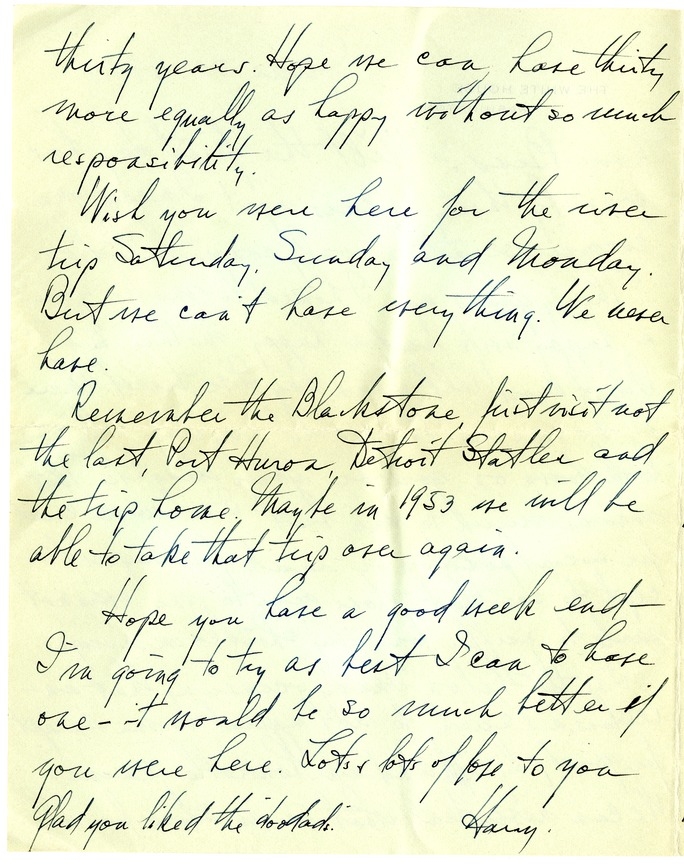 thirty years. Hope we can have thirty
more equally as happy without so much
responsibility.
Wish you were here for the river
trip Saturday, Sunday and Monday.
But we can't have everything. We never
have.
Remember the Blackstone, first visit not
the last, Port Huron, Detroit Statler and
the trip home. Maybe in 1953 we will be
able to take that trip over again.
Hope you have a good week end—
I'm going to try as best I can to have
one—it would be so much better if
you were here. Lots & lots of love to you
Glad you liked the doodads. Harry.